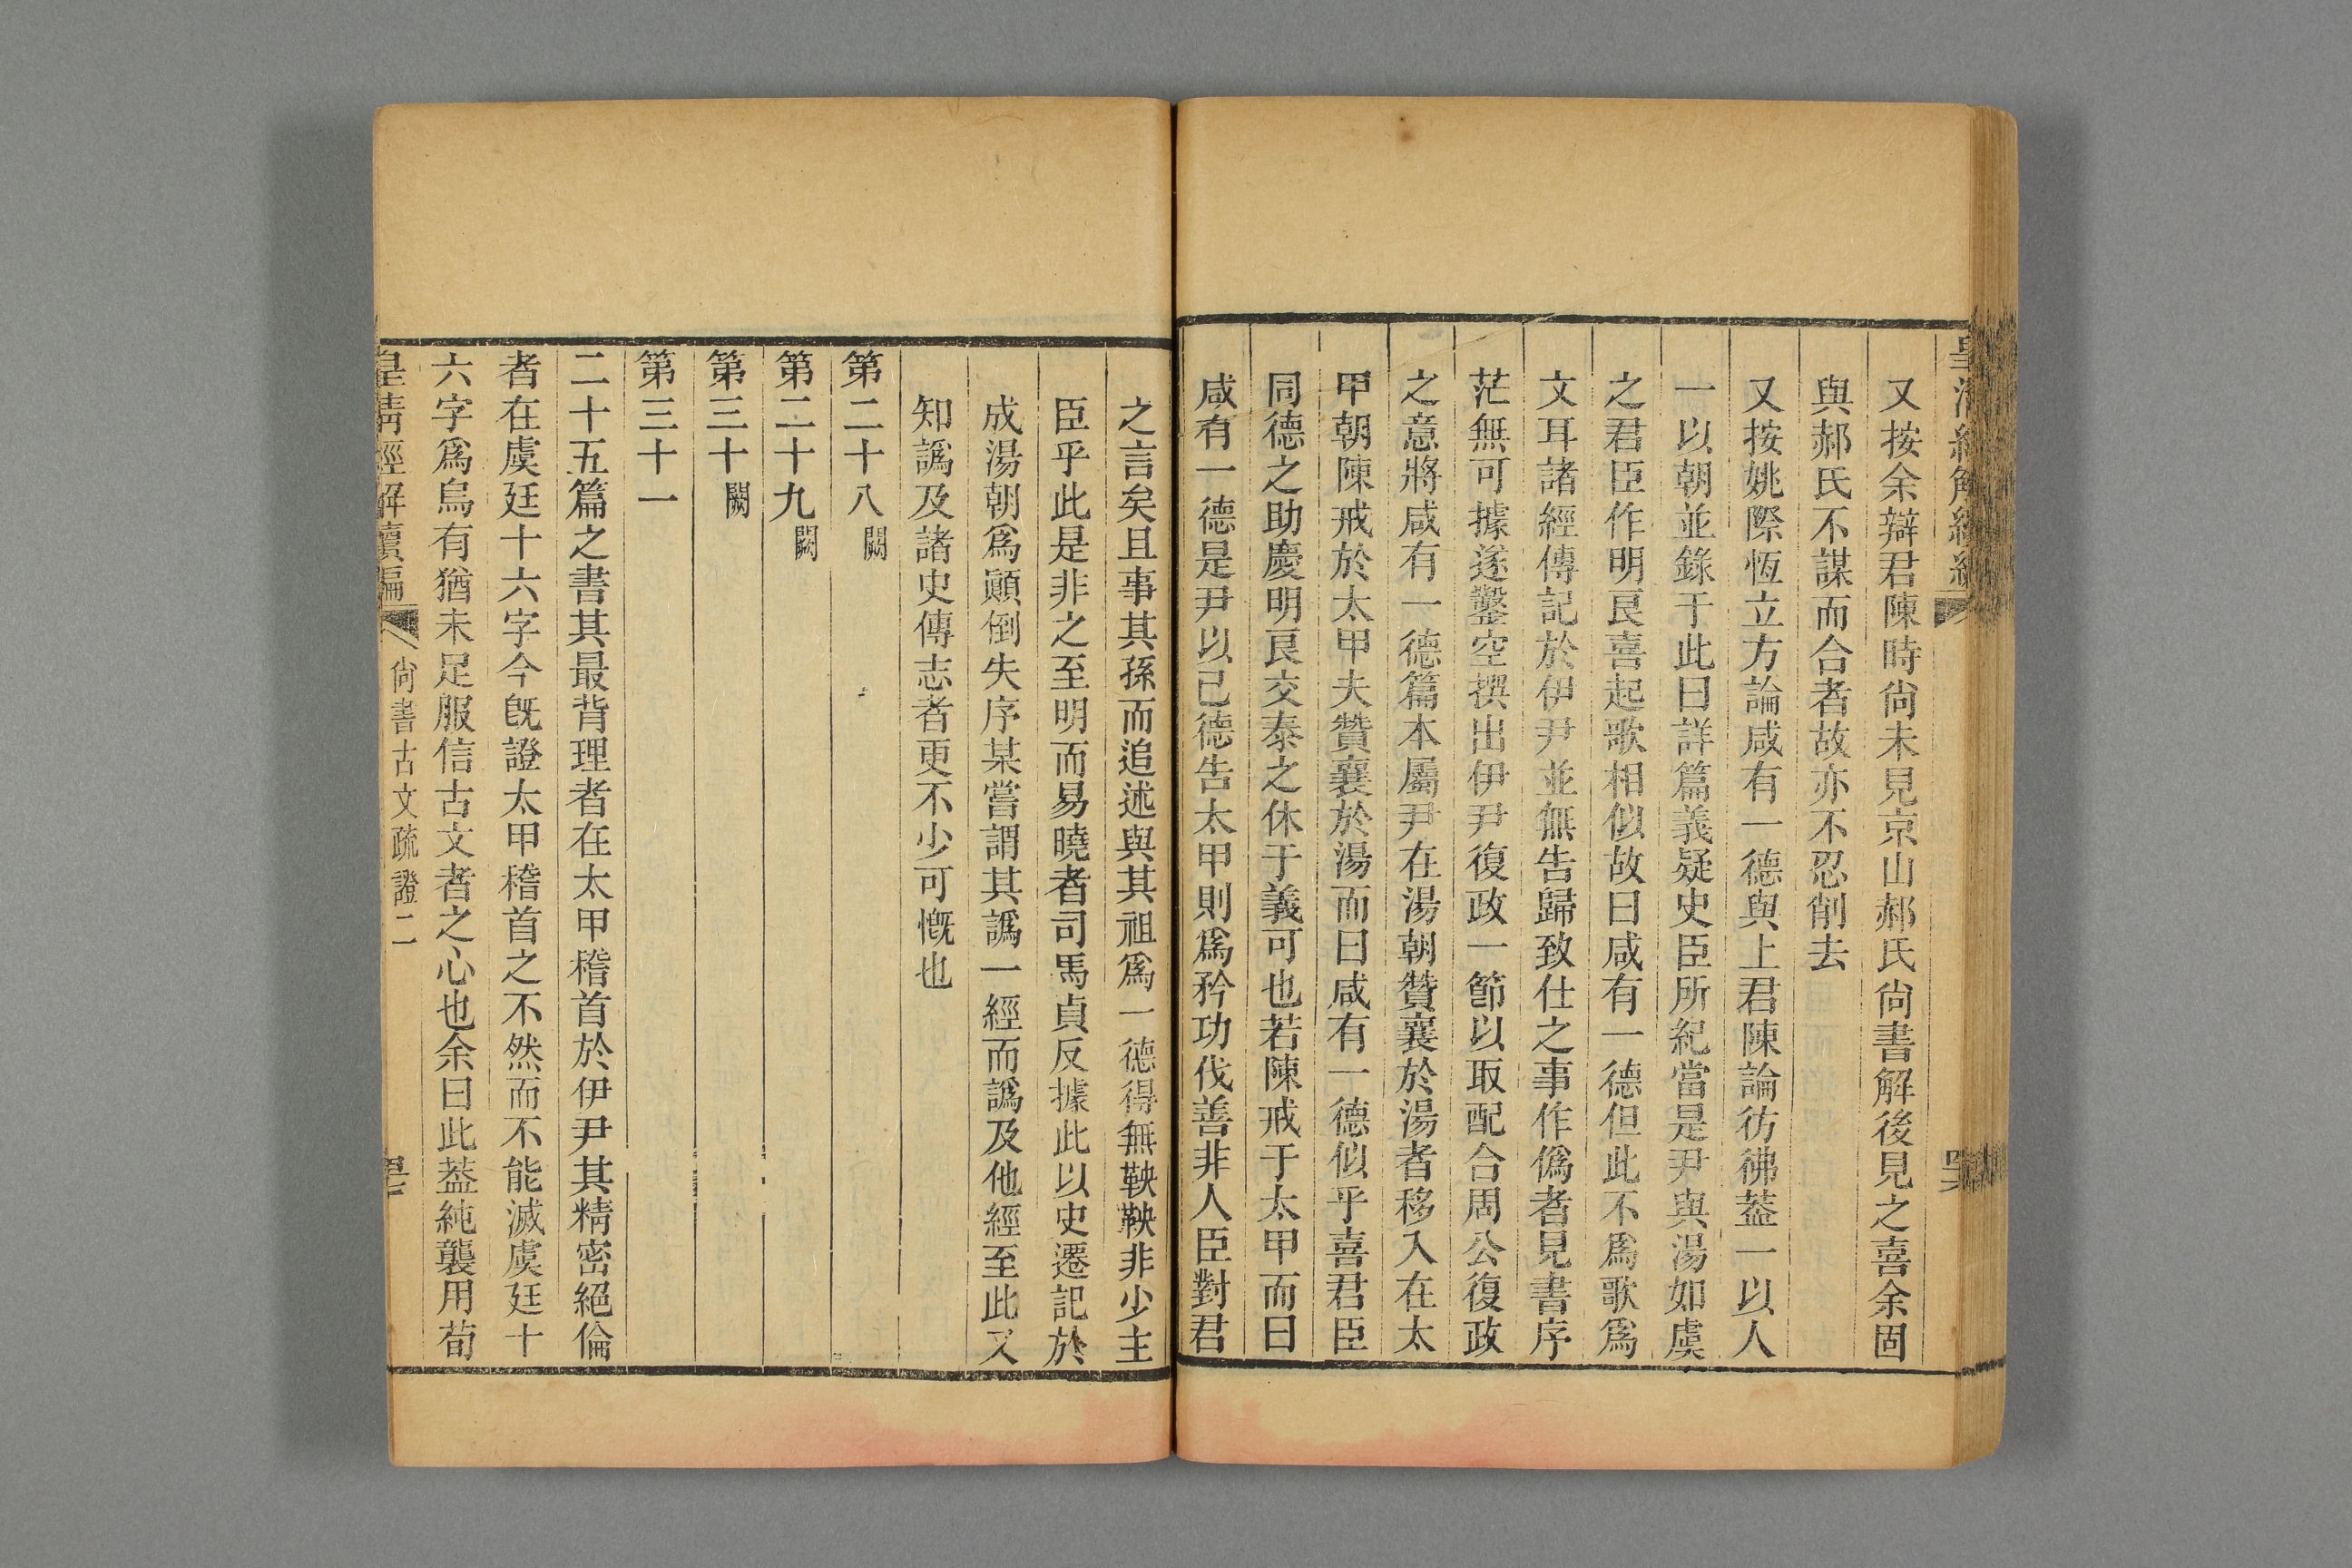 又按余辯君陳時尙未見京山郝氏尙書解後見之喜余固
與郝氏不謀而合者故亦不忍削去
又按姚際恆立方論咸有一德與上君陳論彷彿葢一以人
一以朝並錄于此曰詳篇義疑史臣所紀當是尹與湯如虞
之君臣作明良喜起歌相似故曰咸有一德但此不爲歌爲
文耳諸經傳記於伊尹並無告歸致仕之事作僞者見書序
茫無可據遂鑿空撰出伊尹復政一節以取配合周公復政
之意將咸有一德篇本屬尹在湯朝贊襄於湯者移入在太
甲朝陳戒於太甲夫贊襄於湯而曰咸有一德似乎喜君臣
同德之助慶明良交泰之休于義可也若陳戒于太甲而曰
咸有一德是尹以己德告太甲則爲矜功伐善非人臣對君
之言矣且事其孫而追述與其祖爲一德得無鞅鞅非少主
臣乎此是非之至明而易曉者司馬貞反據此以史遷記於
成湯朝爲顚倒失序某嘗謂其譌一經而譌及他經至此又
知譌及諸史傳志者更不少可慨也
第二十八闕
第二十九闕
第三十闕
第三十一
二十五篇之書其最背理者在太甲稽首於伊尹其精密絕倫
者在虞廷十六字今旣證太甲稽首之不然而不能滅虞廷十
六字爲烏有猶未足服信古文者之心也余曰此葢純襲用荀
皇清經解續編 尙書古文疏證二